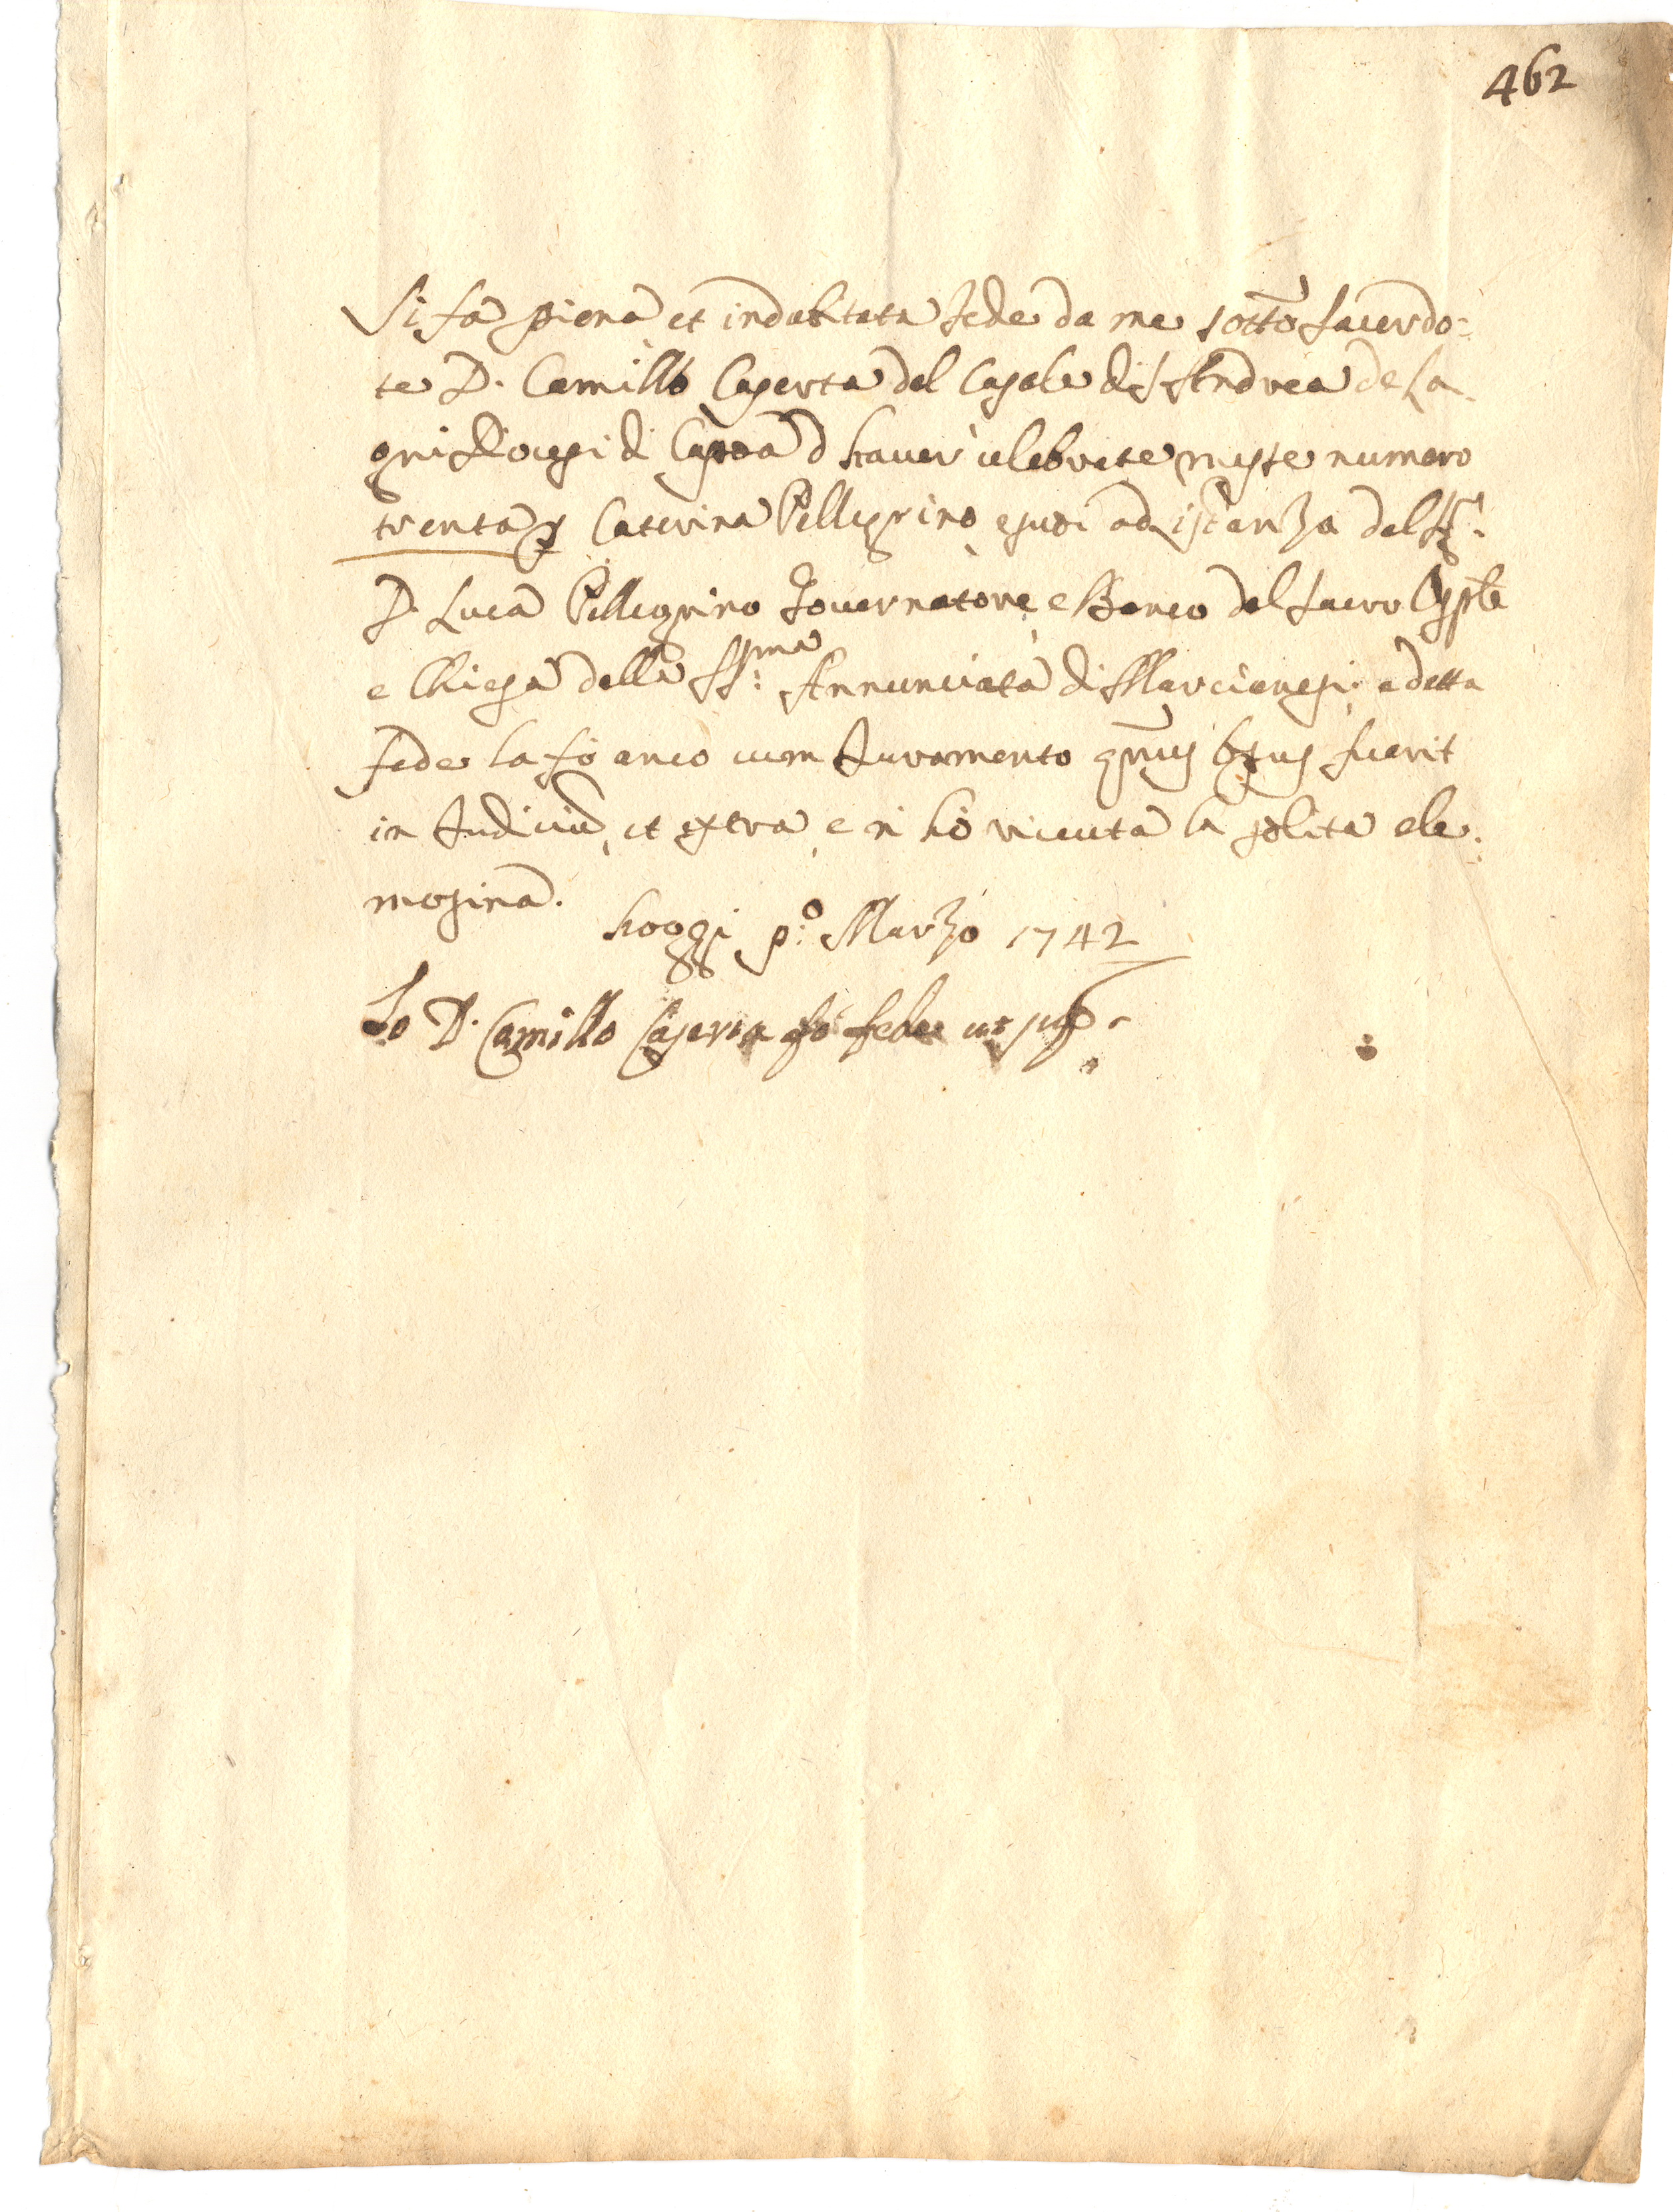 462
Si fà piena et indubitata fede da me sotto Sacerdo=
te D. Camillo Caserta del Casale di S. Andrea de La=
gni Diocesi di Capoa d'haver celebrate messe numero
trenta p Caterina Pellegrino, e ad istanza del Sr.
D. Luca Pellegrino Governatore, e Banco del Sacro Osple
e Chiesa della SS:ma Annunciata di Marcianesi, e detta
fede la fò anco cum Juramento fuerit
in Judiciū, et extra, e ni hò ricevuta la solita ele=
mosina.
hoggi p:o Marzo 1742
Io D. Camillo Caserta fò fede ut supa